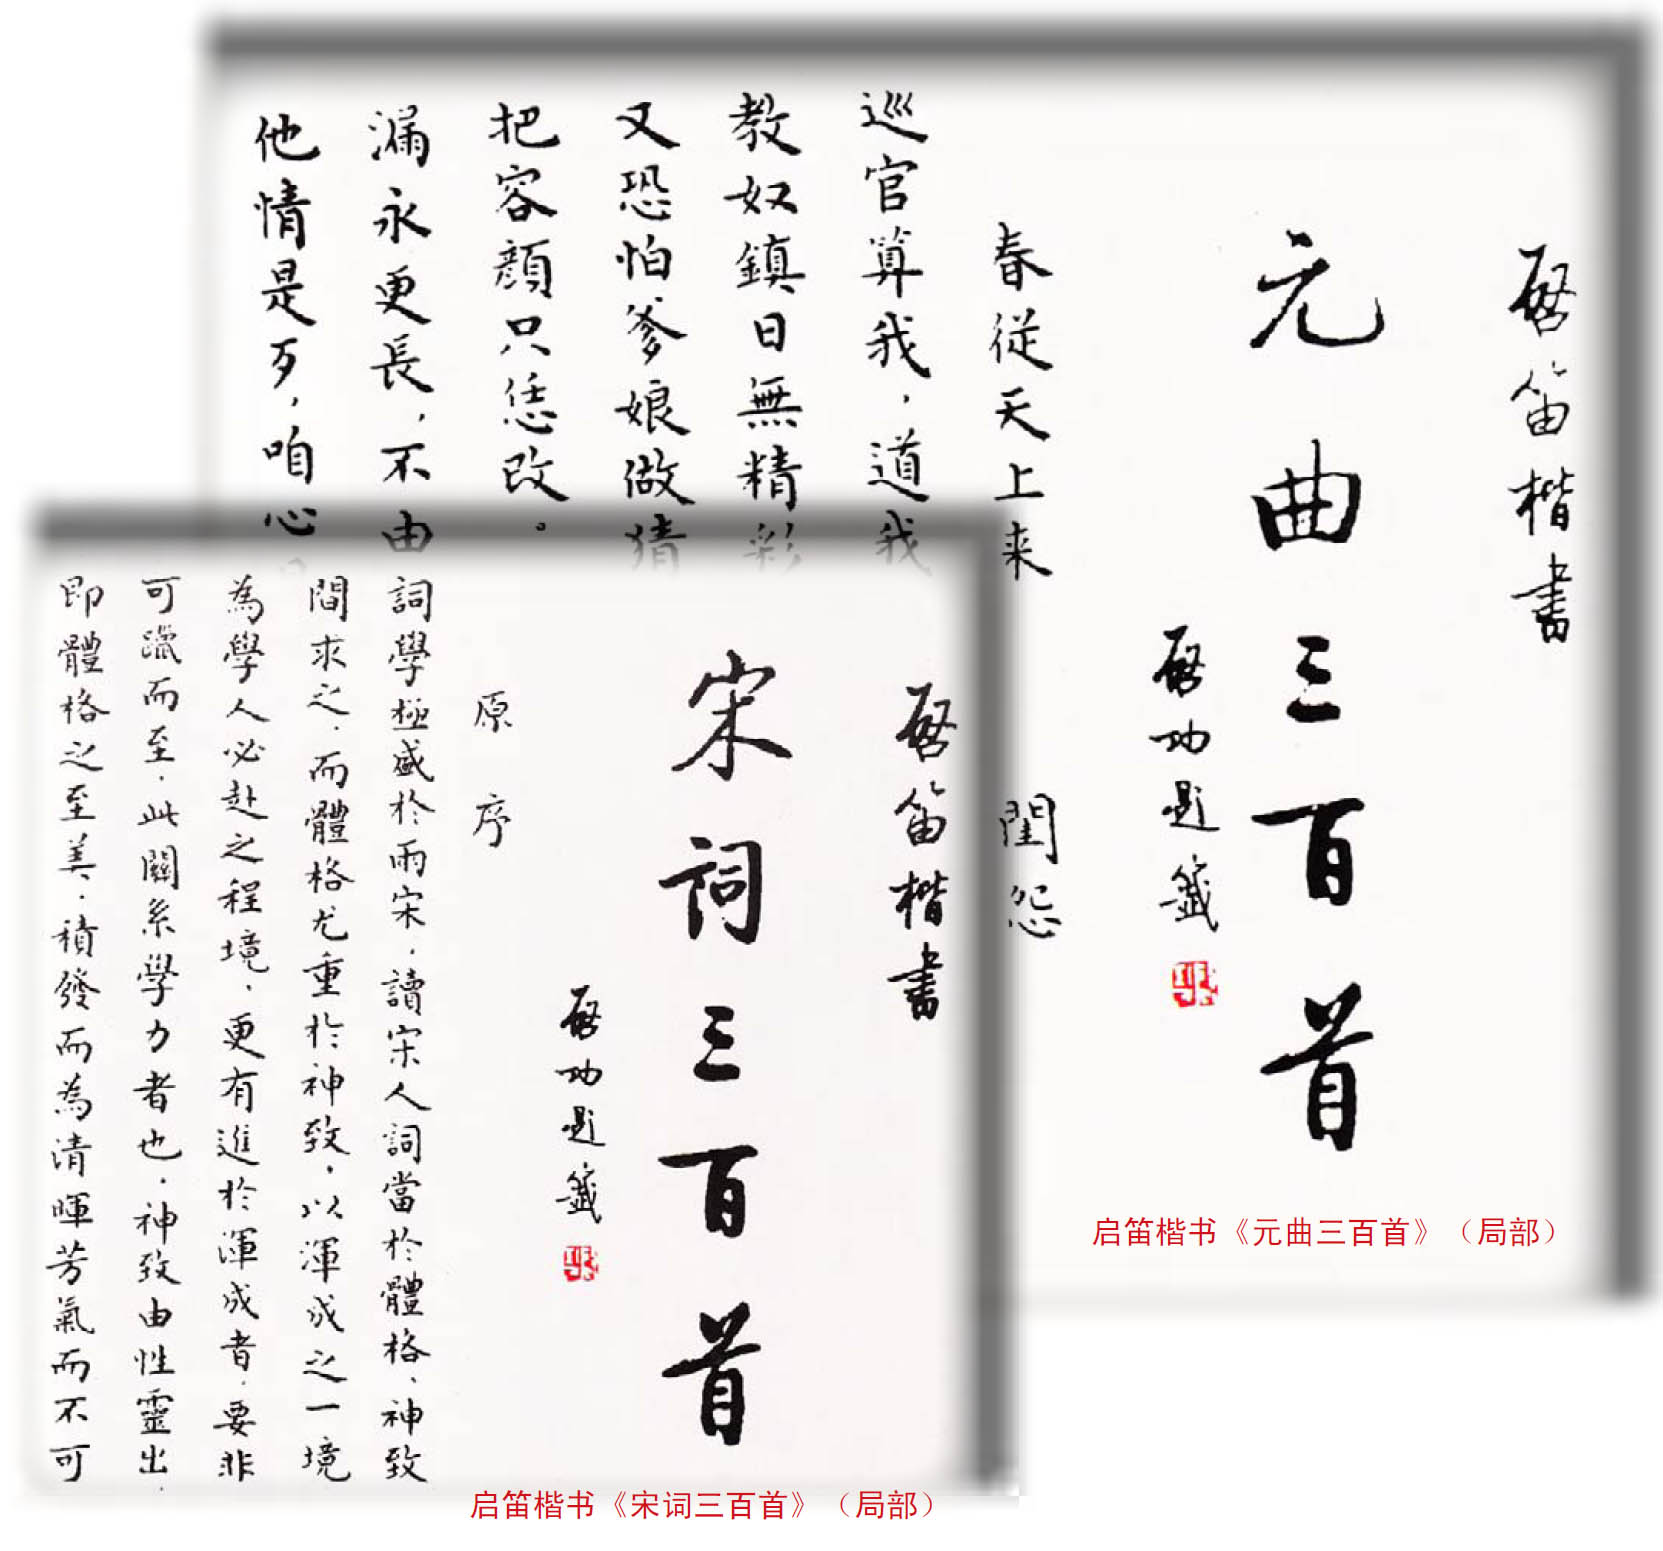 啓笛楷書
元曲三百首
啓功題籤
春從天上来
閨怨
巡官算我，道我
教奴鎮日無精彩
又恐怕爹娘做猜
把容顏只恁改。
漏永更長，不由
他情是歹，咱心
启笛楷书《元曲三百首》（局部）
啓笛楷書
宋詞三百首
啓功題籤
原序
詞學極盛於兩宋，讀宋人詞當於體格、神致
間求之，而體格尤重於神致，以渾成之一境
為學人必赴之程境，更有進於渾成者，要非
可躐而至，此關系學力者也，神致由性靈出，
即體格之至美，積發而為清暉芳氣而不可
启笛楷书《宋词三百首》（局部）